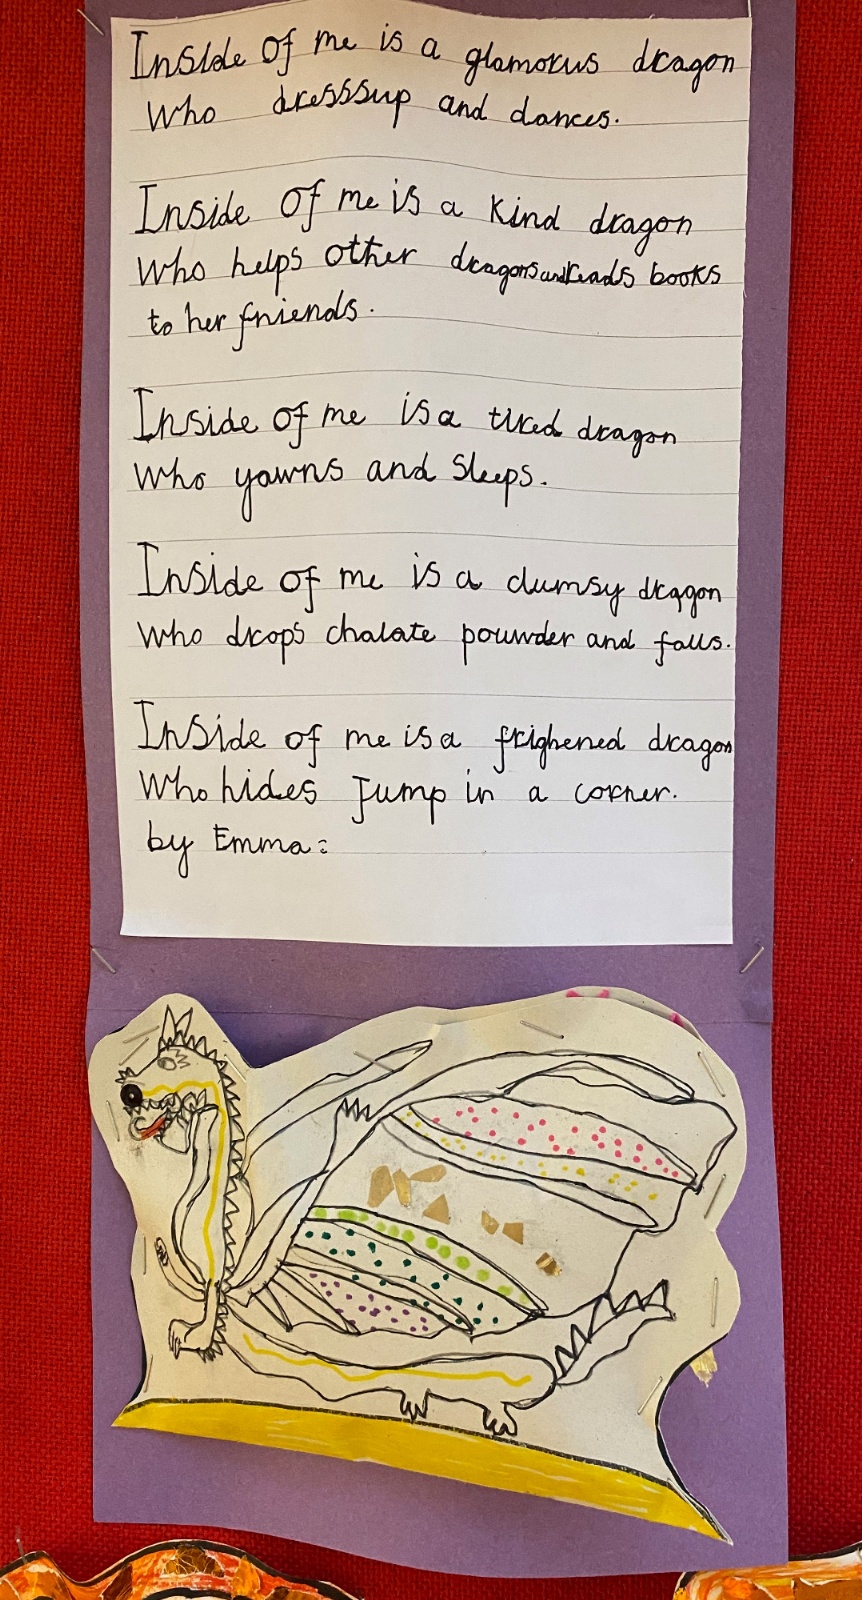 Inside of me is a glamorus dragon
Who dresssup and dances.
Inside of me is a kind dragon
Who helps other dragons and reads books
to her friends.
Inside of me is a tired dragon
Who yawns and sleeps.
Inside of me is a clumsy dragon
Who drops chalate pouwder and falls.
Inside of me is a frighened dragon
Who hides Jump in a corner.
by Emma: